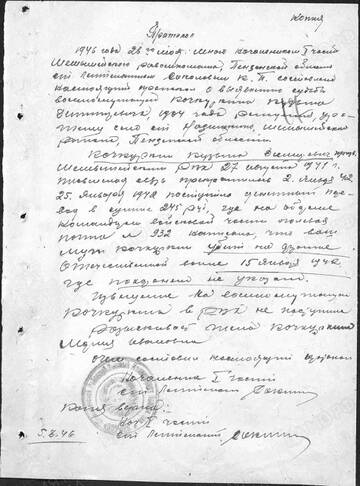 Копия
Протокол
1946 года 28 мая мною начальником I части
Шемышейского райвоенкомата, Пензенской области
ст. лейтенантом К. П. составлен
настоящий протокол о выяснении судьбы
военнослужащего Кочкуркина Кузьма
1904 года рождения, уро-
женец села Шемышейского
района, Пензенской области.
Кочкуркин Кузьма призван
Шемышейским РВК 27 августа 1941 г.
связь прекратилась 2 января 42
25 января 1942 поступил денежный пере-
вод в сумме 245 руб, где на обороте
командиром войсковой части полевая
почта № 932 написано, что ваш
муж Кочкуркин убит на фронте
Отечественной войны 15 января 1942,
где похоронен не указан.
Извещение на военнослужащего
Кочкуркина в РВК не поступил
жена Кочкуркина
Мария Ивановна
О чем составлен настоящий протокол
Начальник I части
ст. лейтенант
Копия верна:
Нач. I части
ст. лейтенант
5.6.46